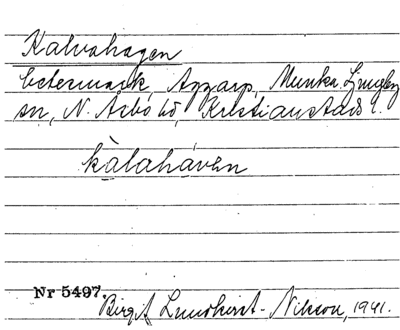 Kalvahagen
betesmark, Apparp, Munka Ljungby
sn, N. Åsbo hd, Kristianstads l.
kàlahá̀ven
Nr 5497.
Birgit Lundkvist-Nilsson, 1941.